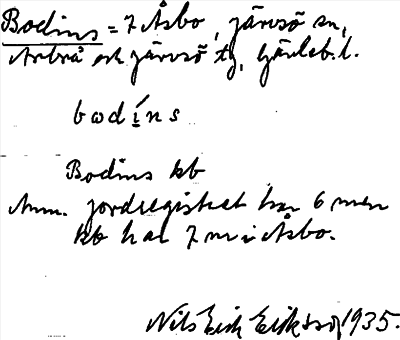 Bodins = 7 Åsbo, Järvsö sn,
Arbrå och Järvsö tg, Gävleb. l.
bodíns
Bodins kb
Anm. Jordregistret har 6 men
kb har 7 m i Åsbo.
Nils Erik Eriksson 1935.